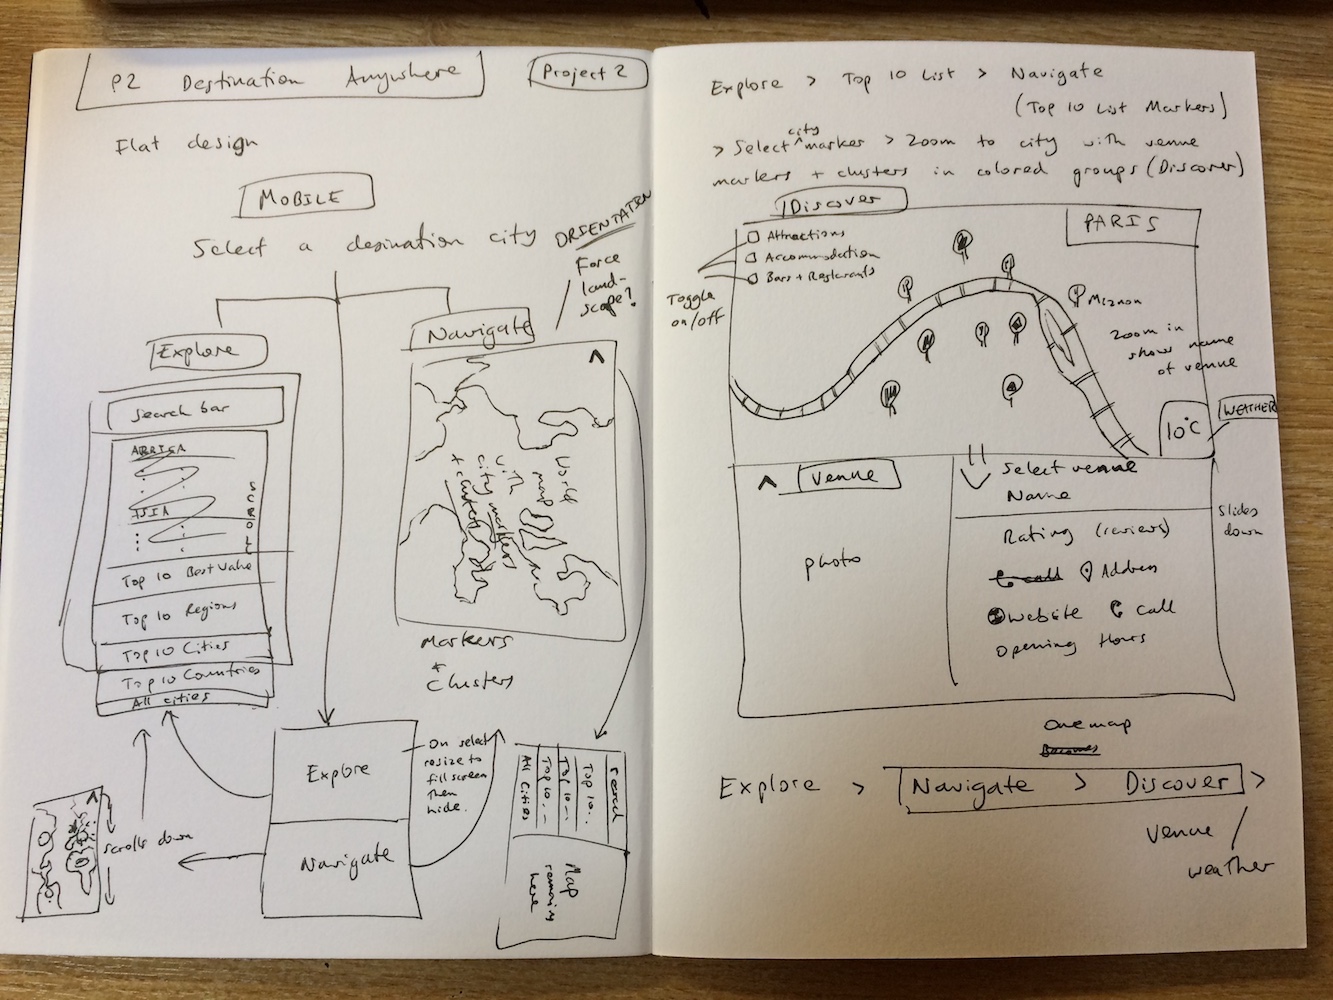 P2 Destination Anywhere
Project 2
Flat design
MOBILE
Select a desination city
ORIENTATION
Force
land-
scape?
Explore
Search bar
AFRICA
ASIA
SCROLL
Top 10 Best Value
Top 10 Regions
Top 10 Cities
Top 10 Countries
All cities
Navigate
World
map
with
city markers
+ clusters
Markers
+
clusters
Explore
Navigate
On select
resize to
fill screen
Then
hide.
scrolls down
Search
Top 10...
Top 10...
Top 10...
All Cities
Map
remaining
here
Explore > Top 10 List > Navigate
(Top 10 List Markers)
> Select city marker > zoom to city with venue
markers + clusters in colored groups (Discover)
Discover
PARIS
Attractions
Accommodation
Bars + Restaurants
Toggle
on/off
Miznon
zoom in
show name
of venue
10°C
WEATHER
Venue
Select venue
Name
photo
Rating (reviews)
call
Address
Website
Call
Opening Hours
Slides
down
One map
Becomes
Explore > Navigate > Discover >
Venue
weather